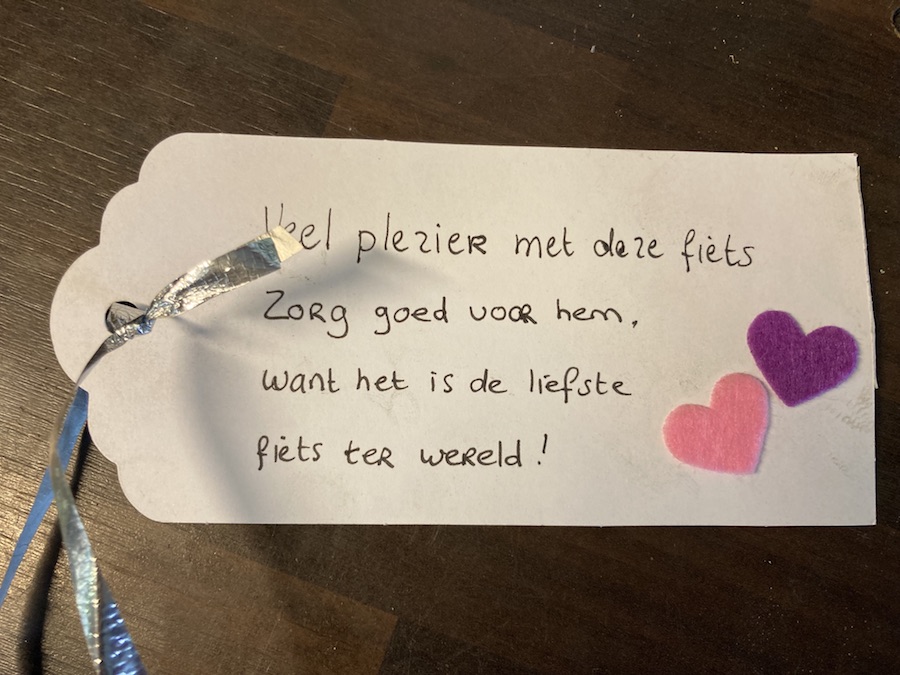 Veel plezier met deze fiets
Zorg goed voor hem,
want het is de liefste
fiets ter wereld!